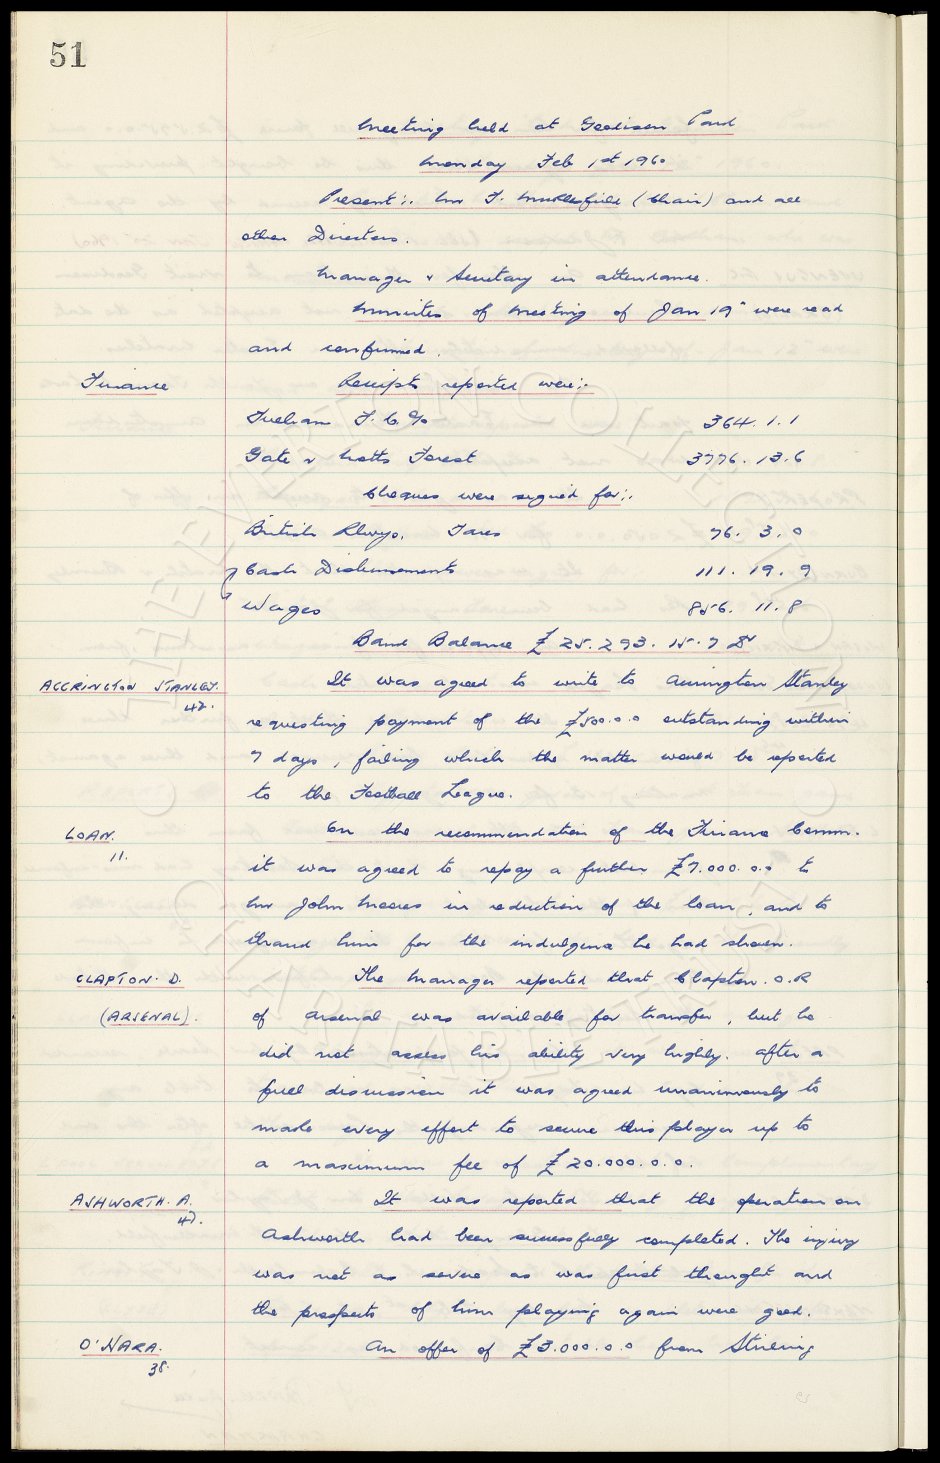 51
Meeting held at Goodison Park
Monday Feb 1st 1960
Present:. Mr F. Micklesfield (Chair) and all
other Directors.
Manager & Secretary in attendance.
Minutes of meeting of Jan 19" were read
and confirmed.
Finance Receipts reported were:-
Fulham F.C. % 364. 1. 1
Gate v Notts Forest 3776. 13. 6
Cheques were signed for:.
British Rlwys. Fares 76. 3. 0
Cash Disbursements 111. 19. 9
Wages 856. 11. 8
Bank Balance £25.293. 15. 7 Dr
ACCRINGTON STANLEY. It was agreed to write to Accrington Stanley
42.
requesting payment of the £500.0.0 outstanding within
7 days, failing which the matter would be reported
to the Football League.
LOAN. On the recommendation of the Finance Comm.
11. it was agreed to repay a further £7.000.0.0 to
Mr John Moores in reduction of the loan, and to
thank him for the indulgence he had shown.
CLAPTON. D. The Manager reported that Clapton. D.R
(ARSENAL). of Arsenal was available for transfer, but he
did not assess his ability very highly. After a
full discussion it was agreed unanimously to
make every effort to secure this player up to
a maximum fee of £20.000.0.0.
ASHWORTH. A. It was reported that the operation on
47.
Ashworth had been successfully completed. The injury
was not as severe as was first thought and
the prospects of him playing again were good.
O'HARA. An offer of £3.000.0.0 from Stirling
38.